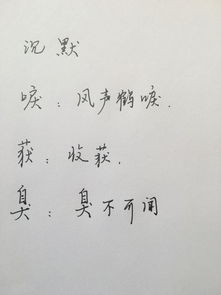 沉默
唳：风声鹤唳.
获：收获.
臭：臭不可闻